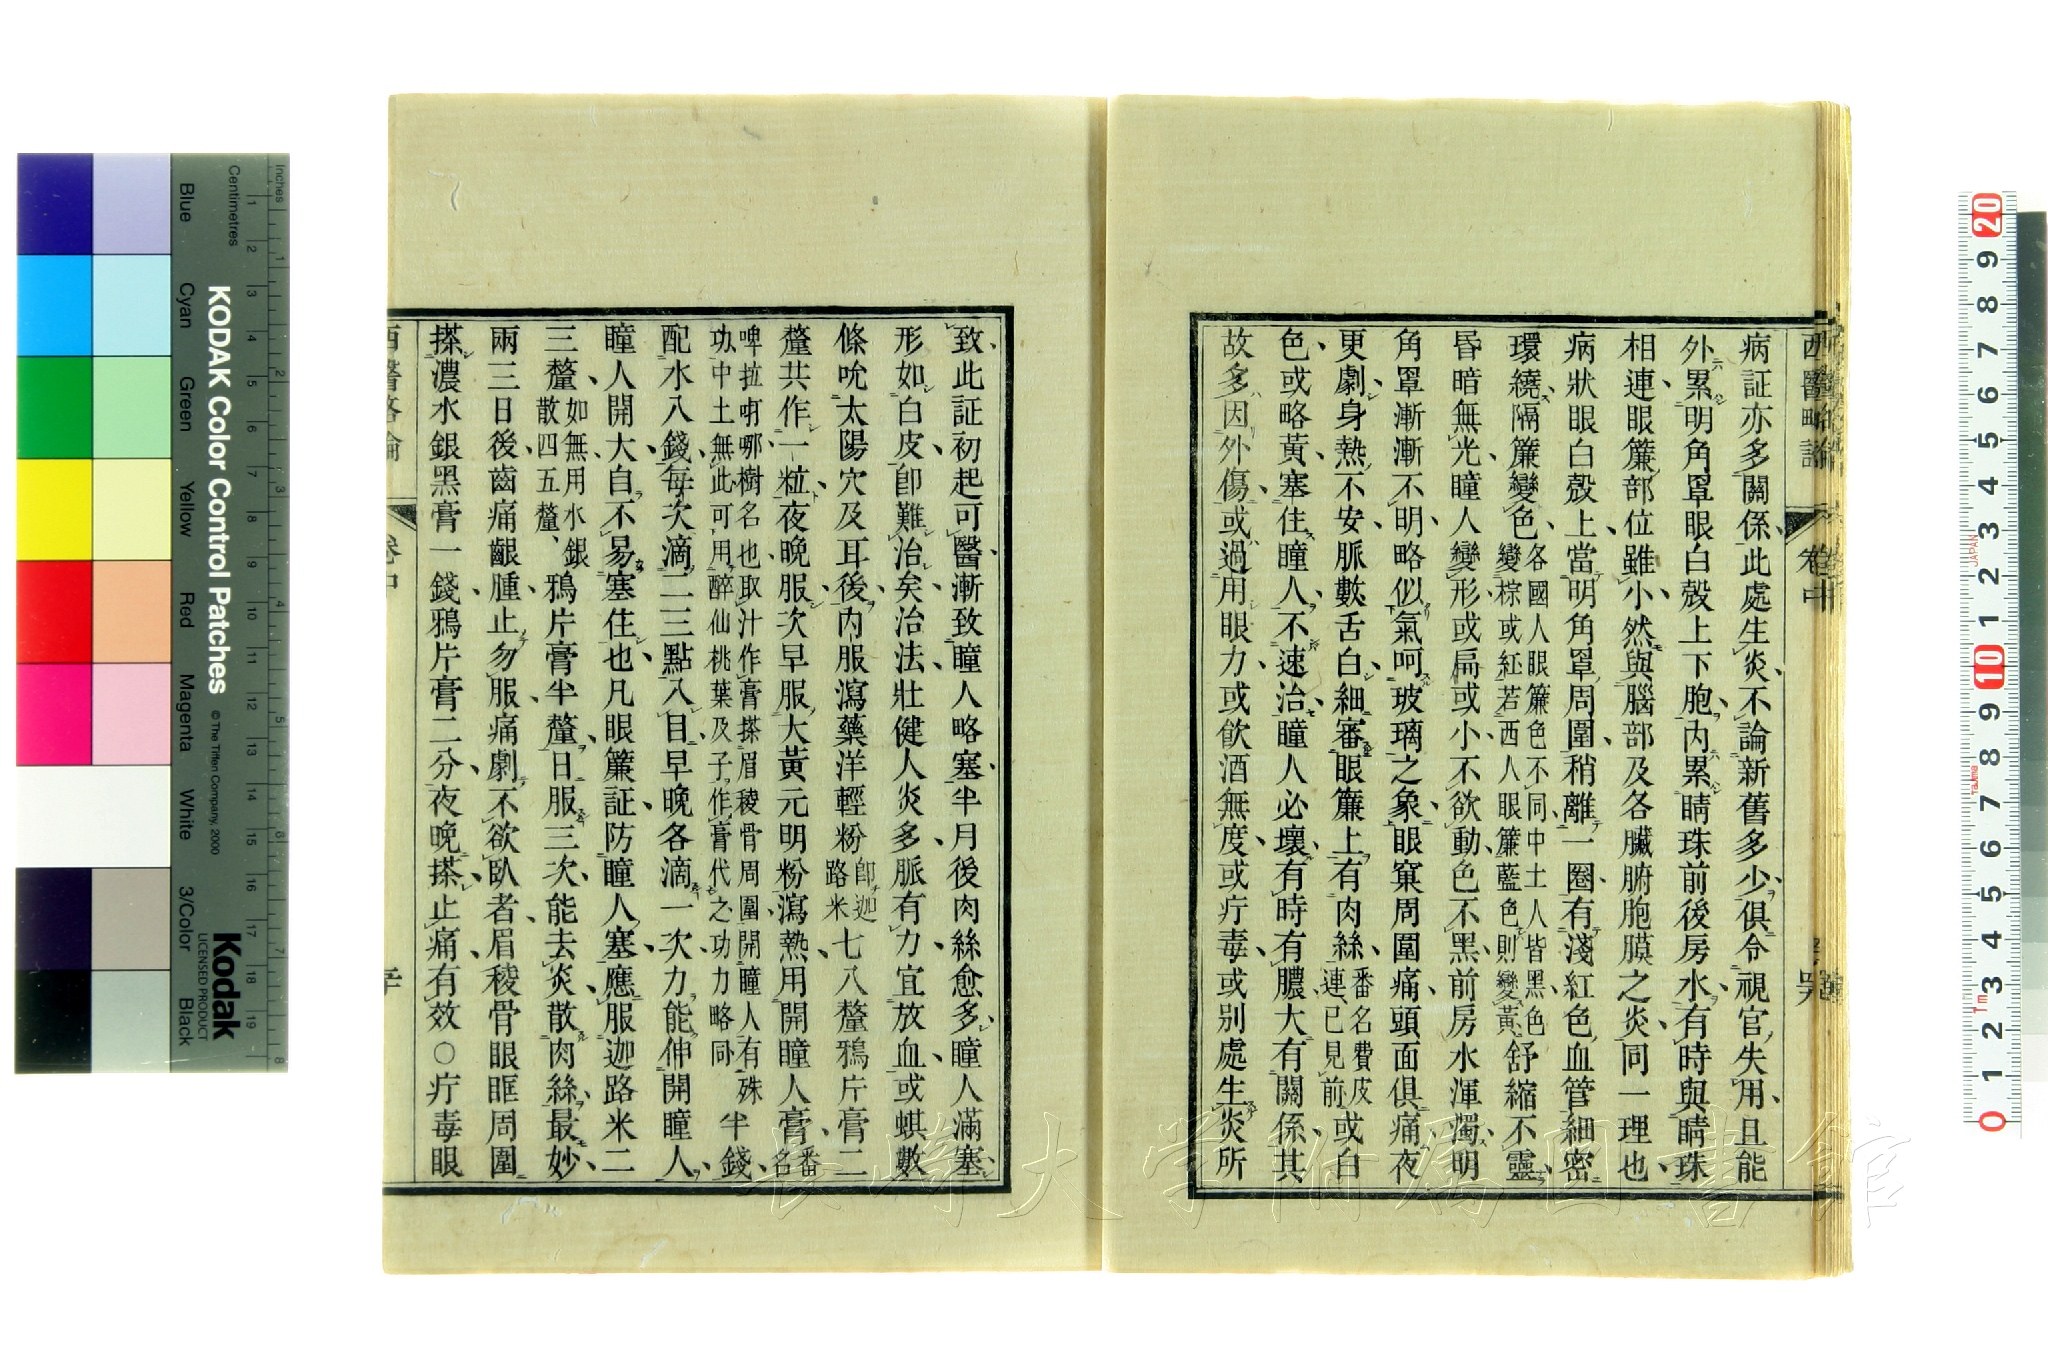 病証亦多關係此處生炎不論新舊多少俱令視官失用且能
外累明角罩眼白殼上下胞內累睛珠前後房水有時與睛珠
相連眼簾部位雖小然與腦部及各臟腑胞膜之炎同一理也
病狀眼白殼上當明角罩周圍稍離一圈有淺紅色血管細密
環繞隔簾變色各國人眼簾色不同中土人皆黑色變棕或紅若西人眼簾藍色則變黃舒縮不靈
昏暗無光瞳人變形或扁或小不欲動色不黑前房水渾濁明
角罩漸漸不明略似氣呵玻璃之象眼窠周圍痛頭面俱痛夜
更劇身熱不安脈數舌白細審眼簾上有肉絲番名費皮連已見前或白
色或略黃塞住瞳人不速治瞳人必壞有時有膿大有關係其
故多因外傷或過用眼力或飲酒無度或疔毒或別處生炎所
西醫略論
卷中
致此証初起可醫漸致瞳人略塞半月後肉絲愈多瞳人滿塞
形如白皮卽難治矣治法壯健人炎多脈有力宜放血或蜞數
條吮太陽穴及耳後內服瀉藥洋輕粉卽迦路米七八釐鴉片膏二
釐共作一粒夜晚服次早服大黃元明粉瀉熱用開瞳人膏番名
啤拉哂哪樹名也取汁作膏搽眉稜骨周圍開瞳人有殊功中土無此可用醉仙桃葉及子作膏代之功力略同半錢
配水八錢每次滴二三點入目早晚各滴一次力能伸開瞳人
瞳人開大自不易塞住也凡眼簾証防瞳人塞應服迦路米二
三釐如無用水銀散四五釐鴉片膏半釐日服三次能去炎散肉絲最妙
兩三日後齒痛齦腫止勿服痛劇不欲臥者眉稜骨眼眶周圍
搽濃水銀黑膏一錢鴉片膏二分夜晚搽止痛有效○疔毒眼
西醫略論
卷中
KODAK Color Control Patches
© The Tiffen Company, 2000
Kodak
LICENSED PRODUCT
Inches
Centimetres
Blue
Cyan
Green
Yellow
Red
Magenta
White
3/Color
Black
長崎大学附属図書館